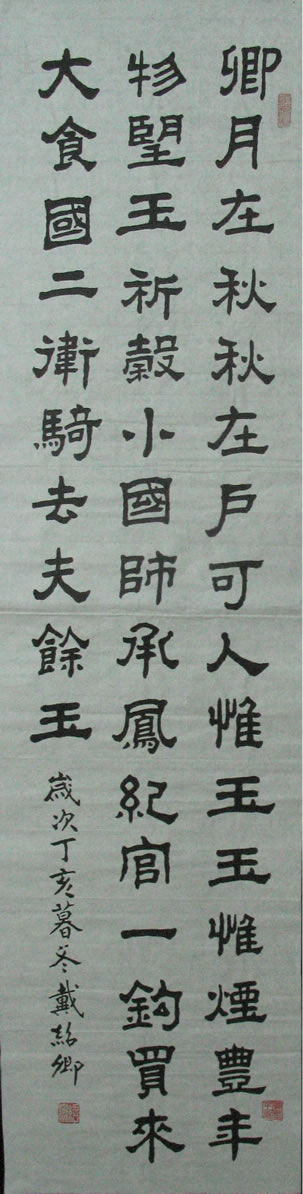 卿月在秋秋在戶可人惟玉玉惟煙豐年
物望玉祈穀小國師承鳳紀官一鈎買來
大食國二衛騎去夫餘玉
歲次丁亥暮冬戴紹卿